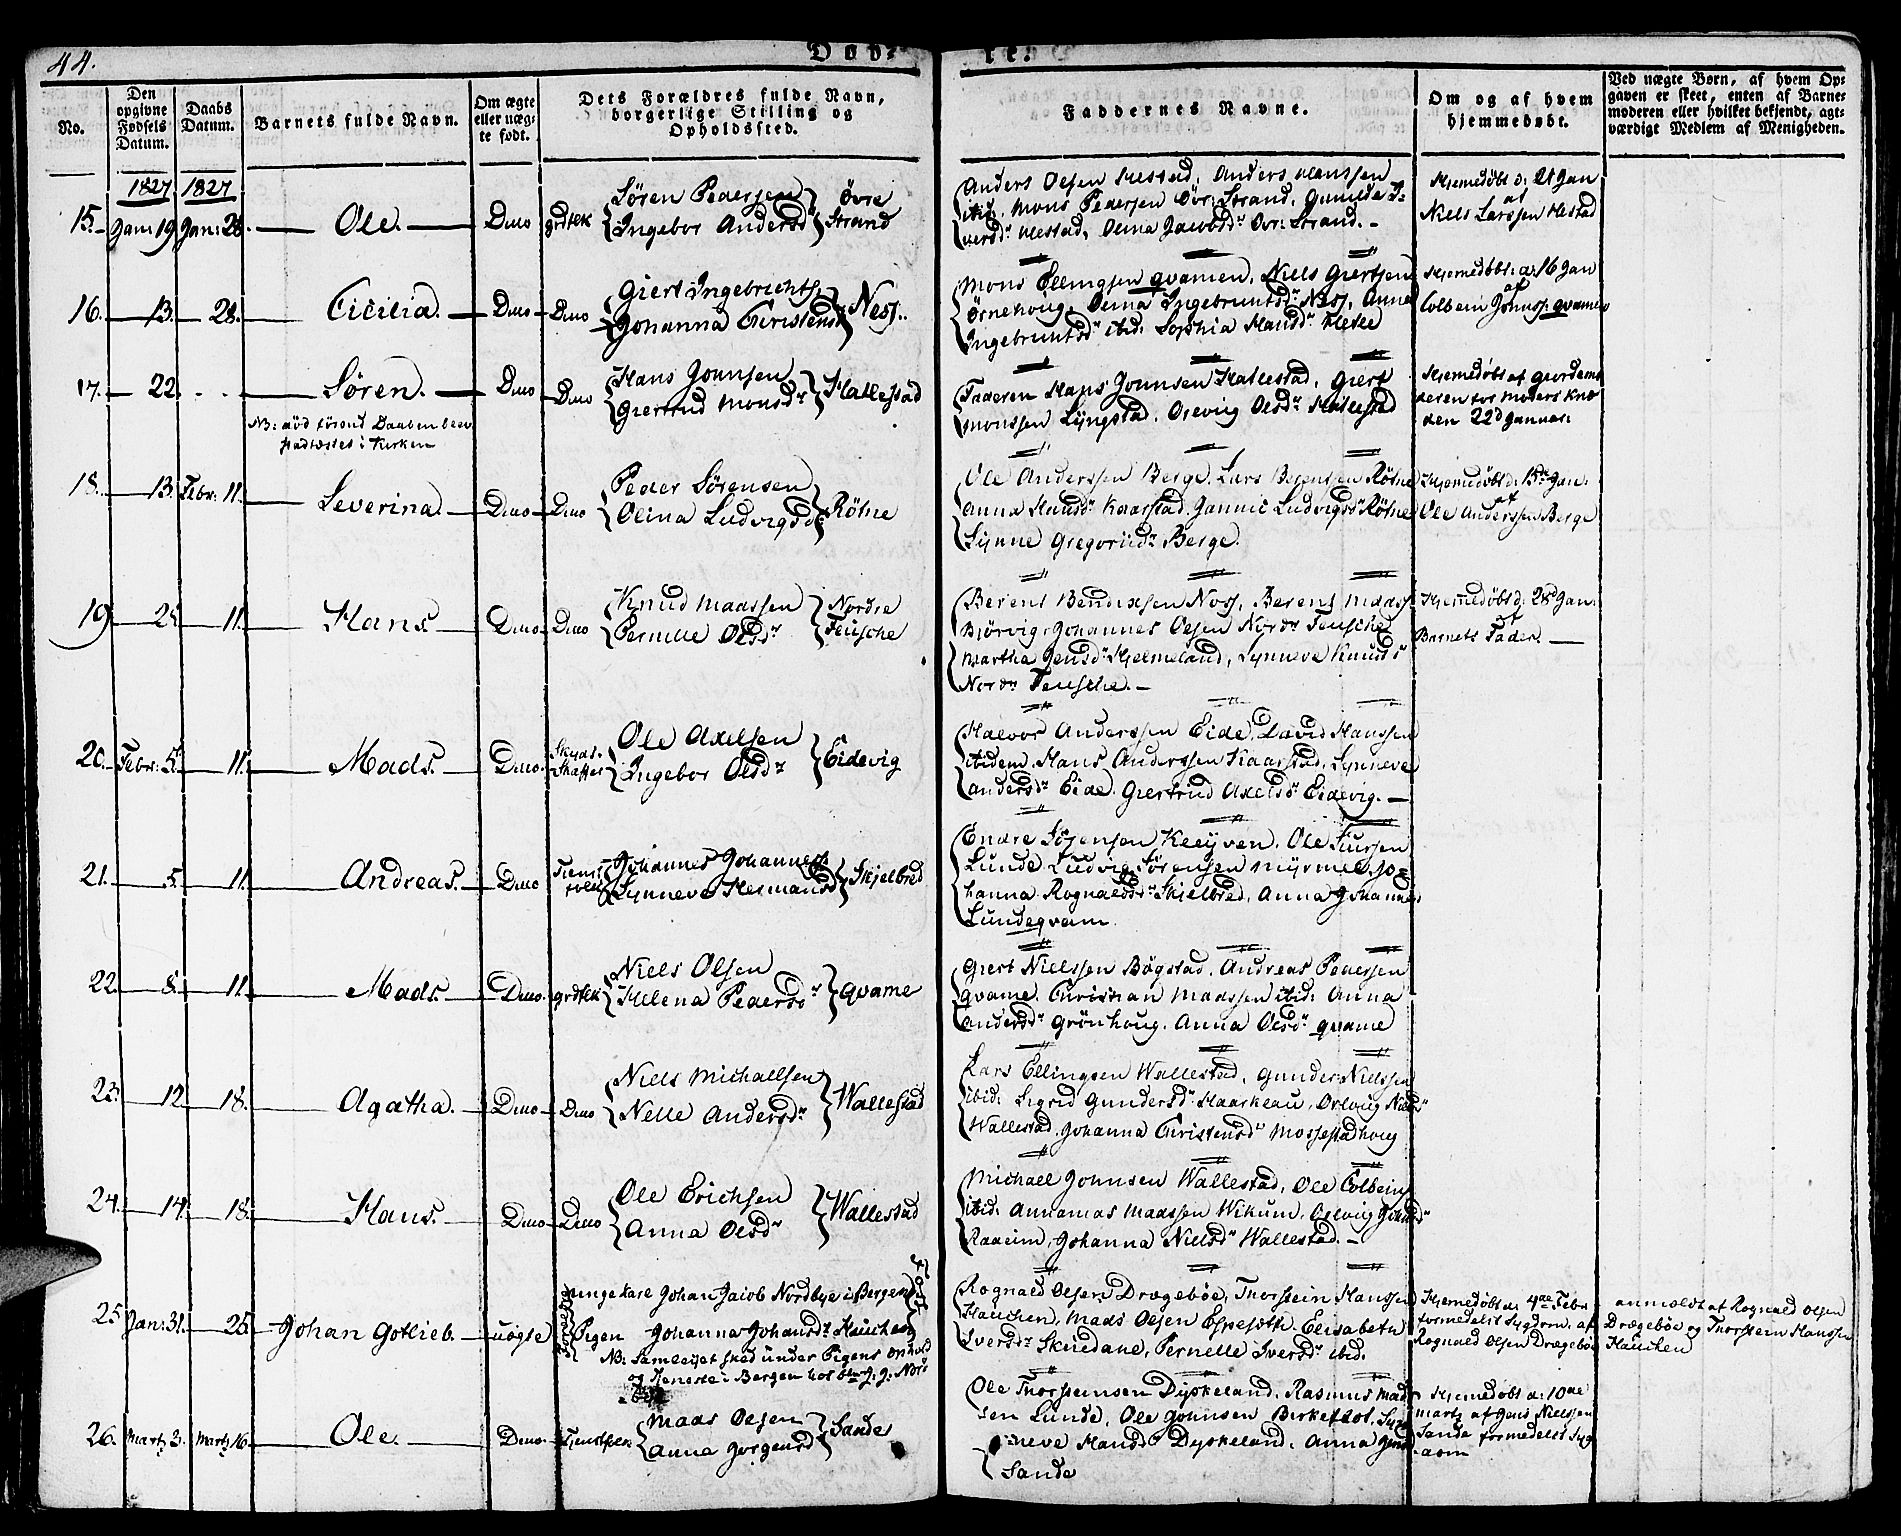 44.
Døb-
te.
No.
Den opgivne Fødsels Datum.
Daabs Datum.
Barnets fulde Navn.
Om ægte eller uæg-te født.
Dets Forældres fulde Navn, borgerlige Stilling og Opholdsfted.
Faddernes Navne.
Om og af hvem hjemmedøbt.
Ved uægte Børn, af hvem Op-
gaven er skeet, enten af Barne-
moderen eller hvilket bekjendt, agt-
værdigt Medlem af Menigheden.
1827 1827
15. Jan: 19 Jan: 28. Ole. Dito grdfolk Sören Pedersen Övre
Ingebor Andersdr Strand
Anders Olsen Hestad, Anders Hanssen
ibid. Mons Pedersen Övr: Strand, Gunilda I-
versdr Hestad, Olina Jacobsdr Övr: Strand. -
Hjemedöbt d: 21 Jan
af
Niels Larssen Hestad
16. 13. 28. Cicilia. Dito Dito Giert Ingebrichts:
Johanna Christensdr Ness.
Mons Ellingsen Qvamen, Niels Giertsen
Örnehoug, Olina Ingebrictsdr Ness, Anna
Ingebrictsdr ibid: Sophia Hansdr Hetle
Hjemedöbt: d: 16 Jan
af
Colbein Johnss: Qvamen
17. 22. Sören. Dito Dito Hans Johnsen
Giertrud Monsdr Hallestad
NB: död förend Daaben blev
stadfæstet i Kirken
Faderen Hans Johnsen Hallestad, Giert
Monssen Lÿngstad, Olevig Olsdr Hallestad
Hjemedöbt af Giordemo
deren for Moders Knæ
den 22d Januar:
18. 13. Febr: 11. Severina. Dito Dito Peder Sörensen
Olina Ludvigsdr Rötne
Ole Anderssen Berge, Lars Berentsen Rötne
Anna Hansdr Kaarstad, Jannic Ludvigsdr Rötne
Sÿnne Gregoriidr Berge.
Hjemedöbt d: 15de Jan:
af
Ole Anderssen Berge
19 11. Hans. Dito Dito Knud Maassen Nordre
Pernille Olsdr Teusche
Berent Bendixsen Noss, Berent Maass:
Biörvig, Johannes Olsen Nordr Teusche
Martha Jensdr Hjelmeland, Synneve Knutsdr
Nordr Teusche. -
Hjemedöbt d: 28 Jan:
af
Barnets Fader. -
20. Febr: 5. 11. Mads. Dito Skyds-
skaffer Ole Axelsen
Ingebor Olsdr Eidevig
Halvor Anderssen Eide, David Hanssen
ibidem. Hans Anderssen Kaarstad, Synneve
Andersdr Eide. Giertrud Axelsdr Eidevig. -
21. 5. 11. Andreas. Dito Tienst-
folk Johannes Johanness:
Synneve Hermansdr Skjelbred
Endre Hleÿven, Ole
Lunde Ludvig Sörensen Mÿrmel, Jo-
hanna Rognaldsdr Skjelbred, Anna Johannes
Lundeqvam
22. 8. 11. Mads. Dito grdfolk Niels Olsen
Helena Pedersdr Qvame
Giert Nielssen Bögstad, Andreas Pedersen
Qvame, Christian Maassen ibid: Anna
Andersdr Grönhoug. Anna Olsdr Qvame
23. 12 18. Agatha. Dito Dito Niels Michaelsen
Nelle Andersdr Wallestad
Lars Ellingsen Wallestad, Gunder Nielssen
ibid: Sigrid Gundersdr Haarklau, Orloug Nielsdr
Wallestad, Johanna Christensdr Mossestadhoug
24. 14. 18. Hans. Dito Dito Ole Erichsen
Anna Olsdr Wallestad
Michael Johnsen Wallestad, Ole Colbeins:
ibid: Annanias Maassen Wikum, Oslvig
Raaeim, Johanna Nielsdr Wallestad. -
25. Jan: 31. 25. Johan Gotlieb. uægte Ungekarl Johan Jacob Nordbye i Bergen
Pigen Johanna Johansdr Hauchen
NB: Samleiet sked under Pigens Ophold
og Tieneste i Bergen
Rognald Olsen Drægebøe, Thorstein Hanssen
Hauchen, Mads Olsen Espesöth, Elisabeth
Iversdr Skiledane, Pernelle Iversdr ibid.
Hjemedöbt d: 4de Febr
formedelst Sygdom, af
Rognald Olsen Drægebøe
anmeldt af Rognald Olsen
Drægebøe og Thorstein Hanssen
Hauchen
26. Martz 3. Martz 16 Ole. Dito Tienstfolk Maas Olsen
Anna Jørgensdr Sande
Ole Thorsteinsen Dyskeland, Rasmus Mad
sen Lunde, Ole Johnsen Birkeflot, Syn
neve Hansdr Dyskeland, Anna Jensdr
Sande
Hjemedöbt d: 10de
Martz af Jens Nielssen
Sande formedelst Syg
dom